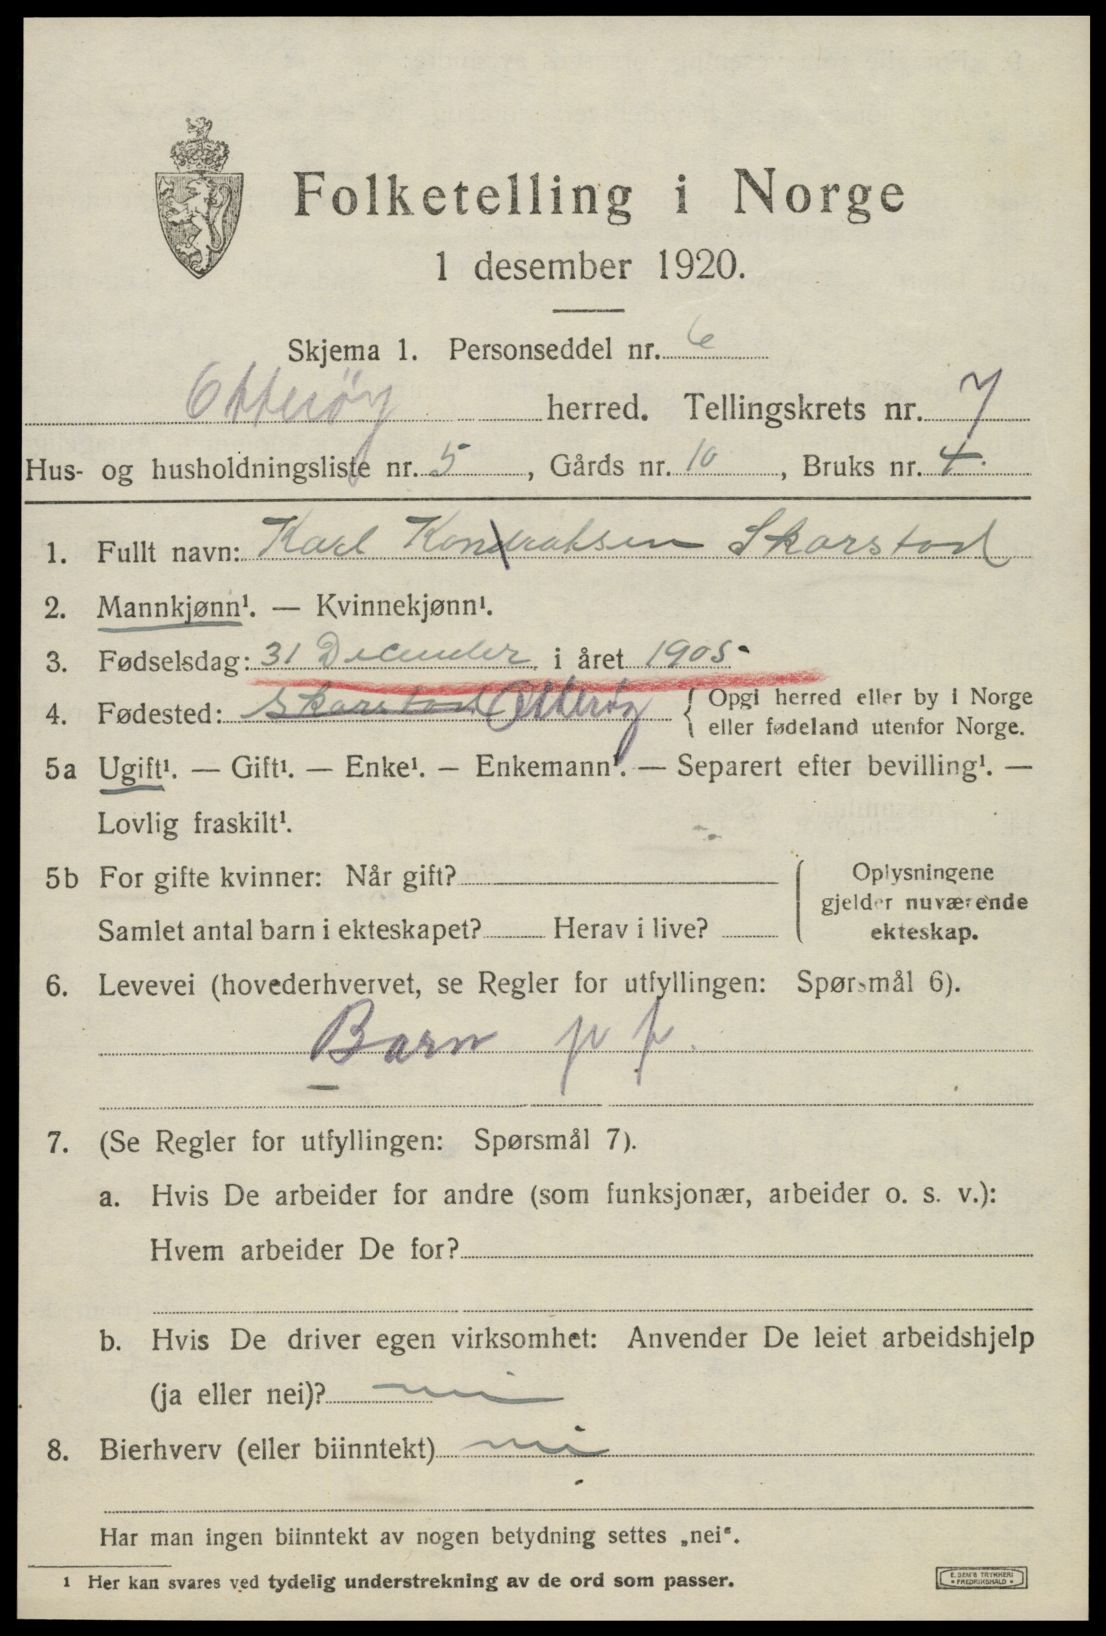 Folketelling i Norge
1 desember 1920.
Skjema 1. Personseddel nr. 6
Otterøy herred. Tellingskrets nr. 7
Hus- og husholdningsliste nr. 5, Gårds nr. 10, Bruks nr. 4.
1. Fullt navn: Karl Kondraksen Skarstad
2. Mannkjønn¹. — Kvinnekjønn¹.
3. Fødselsdag: 31 December i året 1905.
4. Fødested: Skarstad Otterøy { Opgi herred eller by i Norge
eller fødeland utenfor Norge.
5a Ugift¹. — Gift¹. — Enke¹. — Enkemann¹. — Separert efter bevilling¹. —
Lovlig fraskilt¹.
5b For gifte kvinner: Når gift?
Samlet antal barn i ekteskapet? Herav i live?
Oplysningene
gjelder nuværende
ekteskap.
6. Levevei (hovederhvervet, se Regler for utfyllingen: Spørsmål 6).
Barn
7. (Se Regler for utfyllingen: Spørsmål 7).
a. Hvis De arbeider for andre (som funksjonær, arbeider o. s. v.):
Hvem arbeider De for?
b. Hvis De driver egen virksomhet: Anvender De leiet arbeidshjelp
(ja eller nei)? nei
8. Bierhverv (eller biinntekt) nei
Har man ingen biinntekt av nogen betydning settes „nei“.
¹ Her kan svares ved tydelig understrekning av de ord som passer.
FREDRIKSHALD